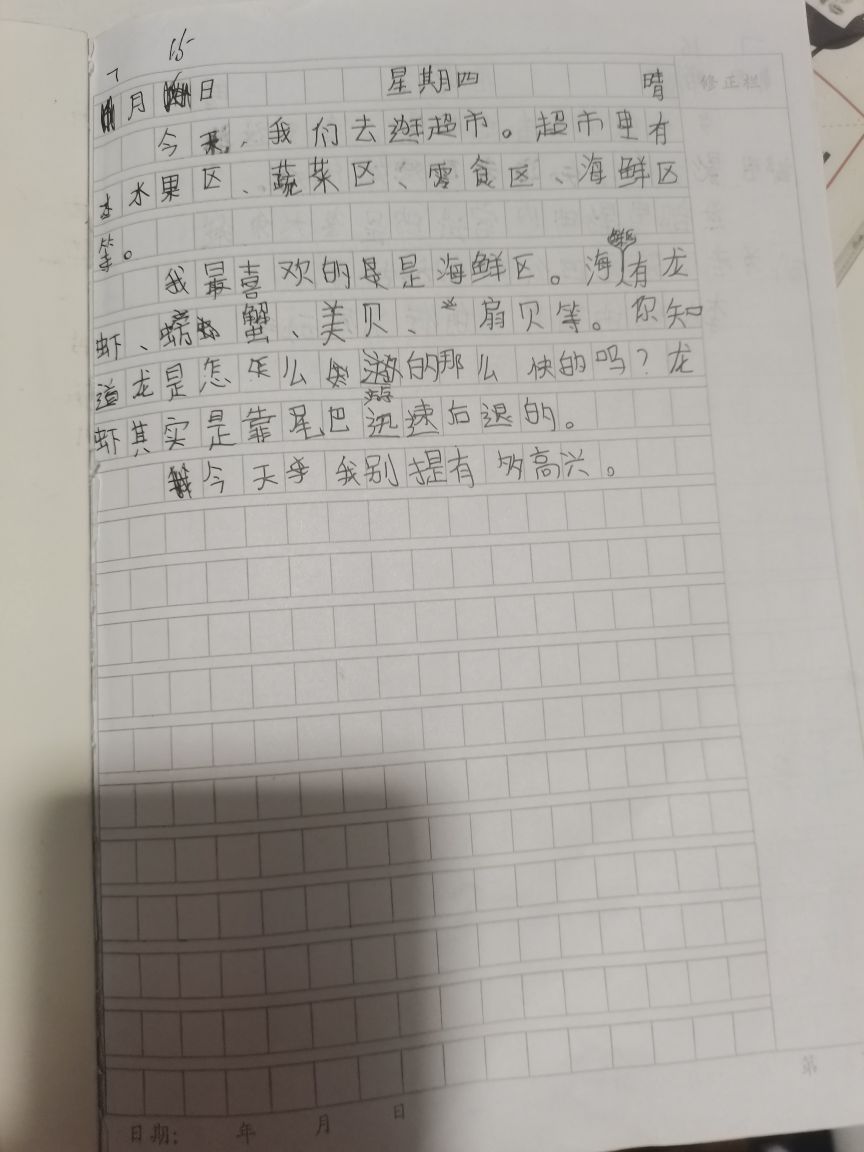 7月15日 星期四 晴 修正栏
今天,我们去逛超市。超市里有
水果区、蔬菜区、零食区、海鲜区
等。
我最喜欢的是海鲜区。海鲜区有龙
虾、螃蟹、美贝、扇贝等。你知
道龙是怎么游的那么快的吗?龙
虾其实是靠尾巴迅速后退的。
今天我别提有多高兴。
日期: 年 月 日
第